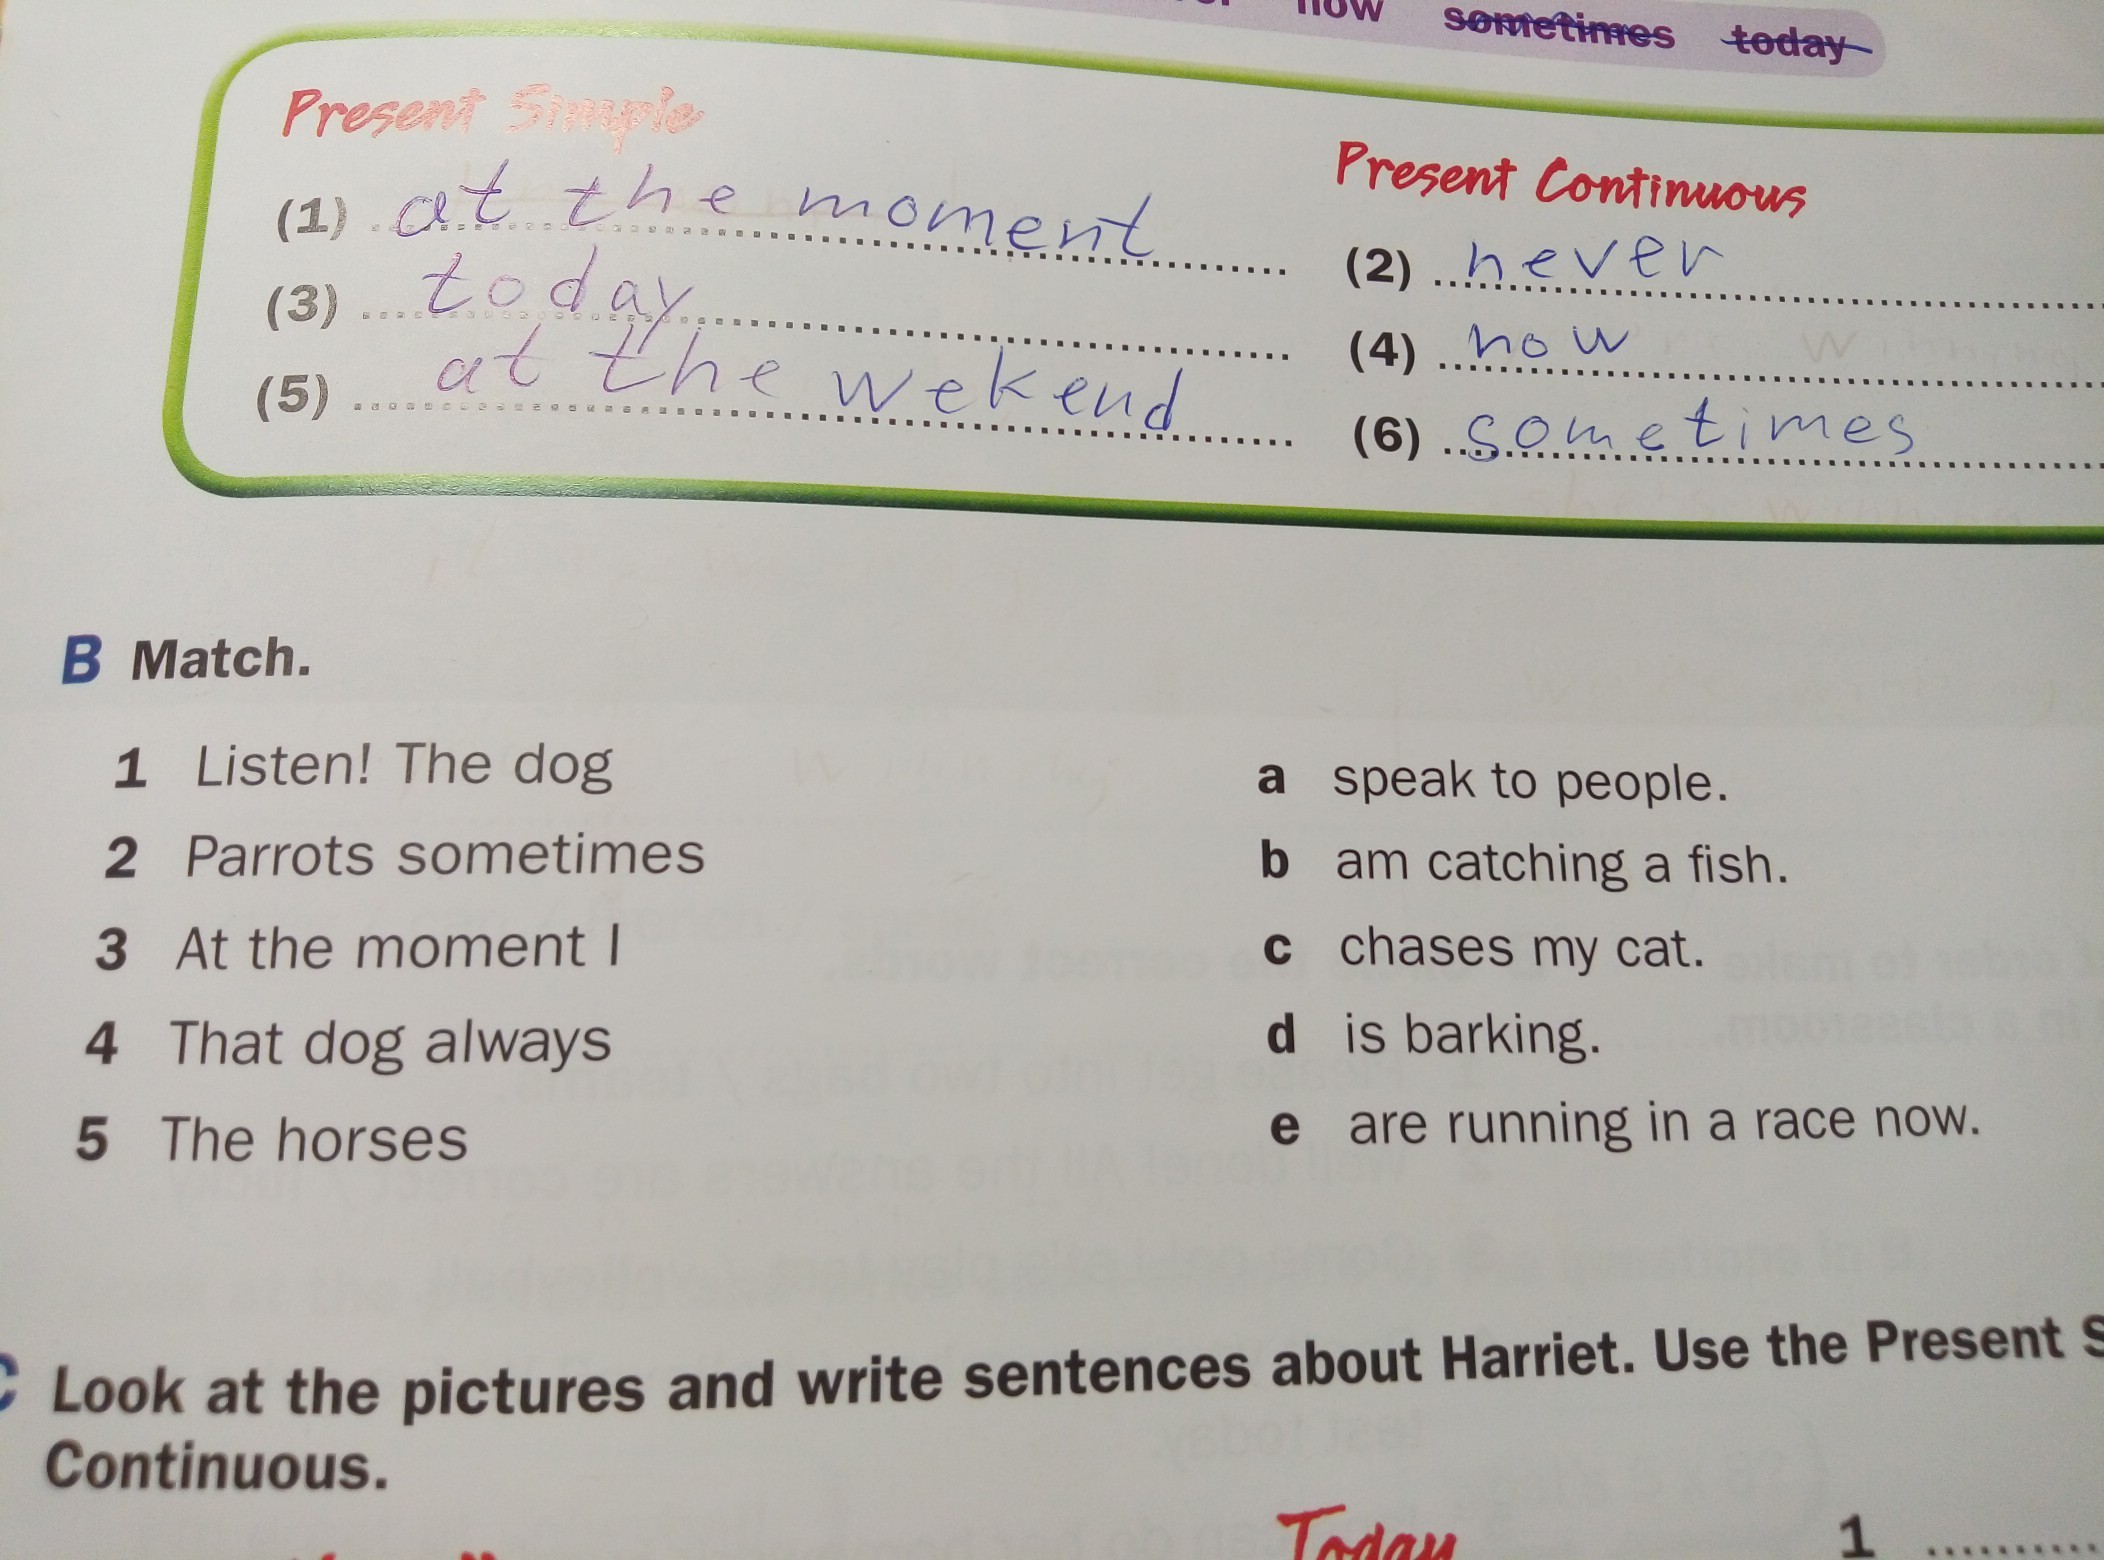 now sometimes today
Present Simple
Present Continuous
(1) at the moment
(2) never
(3) today
(4) now
(5) at the wekend
(6) sometimes
B Match.
1 Listen! The dog
a speak to people.
2 Parrots sometimes
b am catching a fish.
3 At the moment I
c chases my cat.
4 That dog always
d is barking.
5 The horses
e are running in a race now.
C Look at the pictures and write sentences about Harriet. Use the Present S
Continuous.
Today
1